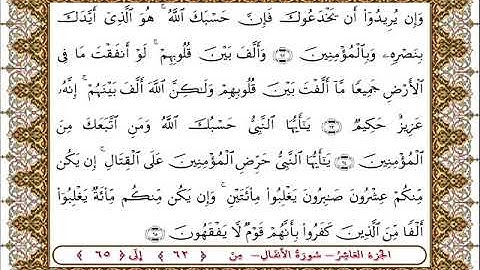 وَإِن يُرِيدُوٓا۟ أَن يَخْدَعُوكَ فَإِنَّ حَسْبَكَ ٱللَّهُ ۚ هُوَ ٱلَّذِىٓ أَيَّدَكَ
بِنَصْرِهِۦ وَبِٱلْمُؤْمِنِينَ ﴿٦٢﴾ وَأَلَّفَ بَيْنَ قُلُوبِهِمْ ۚ لَوْ أَنفَقْتَ مَا فِى
ٱلْأَرْضِ جَمِيعًا مَّآ أَلَّفْتَ بَيْنَ قُلُوبِهِمْ وَلَـٰكِنَّ ٱللَّهَ أَلَّفَ بَيْنَهُمْ ۚ إِنَّهُۥ
عَزِيزٌ حَكِيمٌ ﴿٦٣﴾ يَـٰٓأَيُّهَا ٱلنَّبِىُّ حَسْبُكَ ٱللَّهُ وَمَنِ ٱتَّبَعَكَ مِنَ
ٱلْمُؤْمِنِينَ ﴿٦٤﴾ يَـٰٓأَيُّهَا ٱلنَّبِىُّ حَرِّضِ ٱلْمُؤْمِنِينَ عَلَى ٱلْقِتَالِ ۚ إِن يَكُن
مِّنكُمْ عِشْرُونَ صَـٰبِرُونَ يَغْلِبُوا۟ مِا۟ئَتَيْنِ ۚ وَإِن يَكُن مِّنكُم مِّا۟ئَةٌ يَغْلِبُوٓا۟
أَلْفًا مِّنَ ٱلَّذِينَ كَفَرُوا۟ بِأَنَّهُمْ قَوْمٌ لَّا يَفْقَهُونَ ﴿٦٥﴾
الجزء العاشر - سورة الأنفال - من ﴿ ٦٢ ﴾ إلى ﴿ ٦٥ ﴾